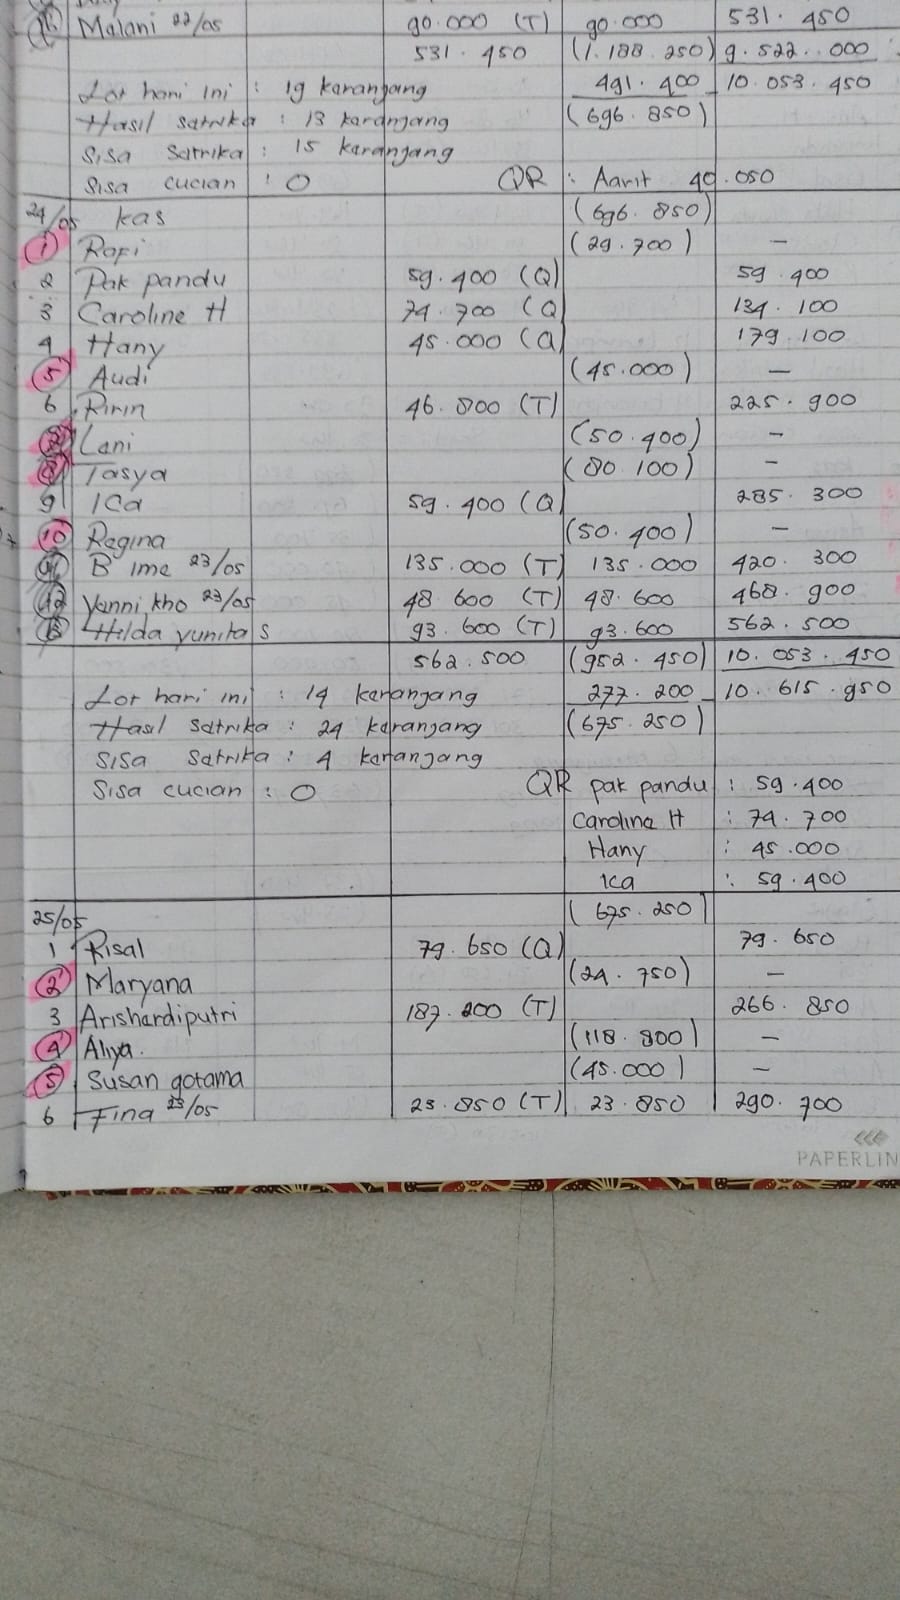 Malani 22/05 90.000 (T) 90.000 531.450
531.450 (1.188.250) 9.522.000
Lot hari ini : 19 karangang 491.400 10.053.450
Hasil satrika : 13 karangang (696.850)
Sisa Satrika : 15 karangang
Sisa cucian : 0 QR : Aarit 40.050
24/05 kas (696.850)
1 Rafi (29.700) –
2 Pak pandu 59.400 (Q) 59.400
3 Caroline H 74.700 (Q 134.100
4 Hany 45.000 (Q) 179.100
5 Audi (45.000) –
6 Ririn 46.800 (T) 225.900
Lani (50.400) –
8 Tasya (80.100) –
9 Ica 59.400 (Q) 285.300
10 Regina (50.400) –
B Ime 23/05 135.000 (T) 135.000 420.300
12 Yenni kho 23/05 48.600 (T) 48.600 468.900
13 Hilda yunitas 93.600 (T) 93.600 562.500
562.500 (952.450) 10.053.450
Lot hari ini : 14 karangang 277.200 – 10.615.950
Hasil Satrika : 24 karangang (675.250)
Sisa Satrika : 4 karangang
Sisa cucian : 0 QR pak pandu : 59.400
Caroline H : 74.700
Hany : 45.000
Ica : 59.400
25/05 (675.250)
1 Risal 79.650 (Q) 79.650
2 Maryana (24.750) –
3 Arishardiputri 187.200 (T) 266.850
4 Aliya. (118.800) –
5 Susan gotama (45.000) –
6 Fina 23/05 23.850 (T) 23.850 290.700
PAPERLIN